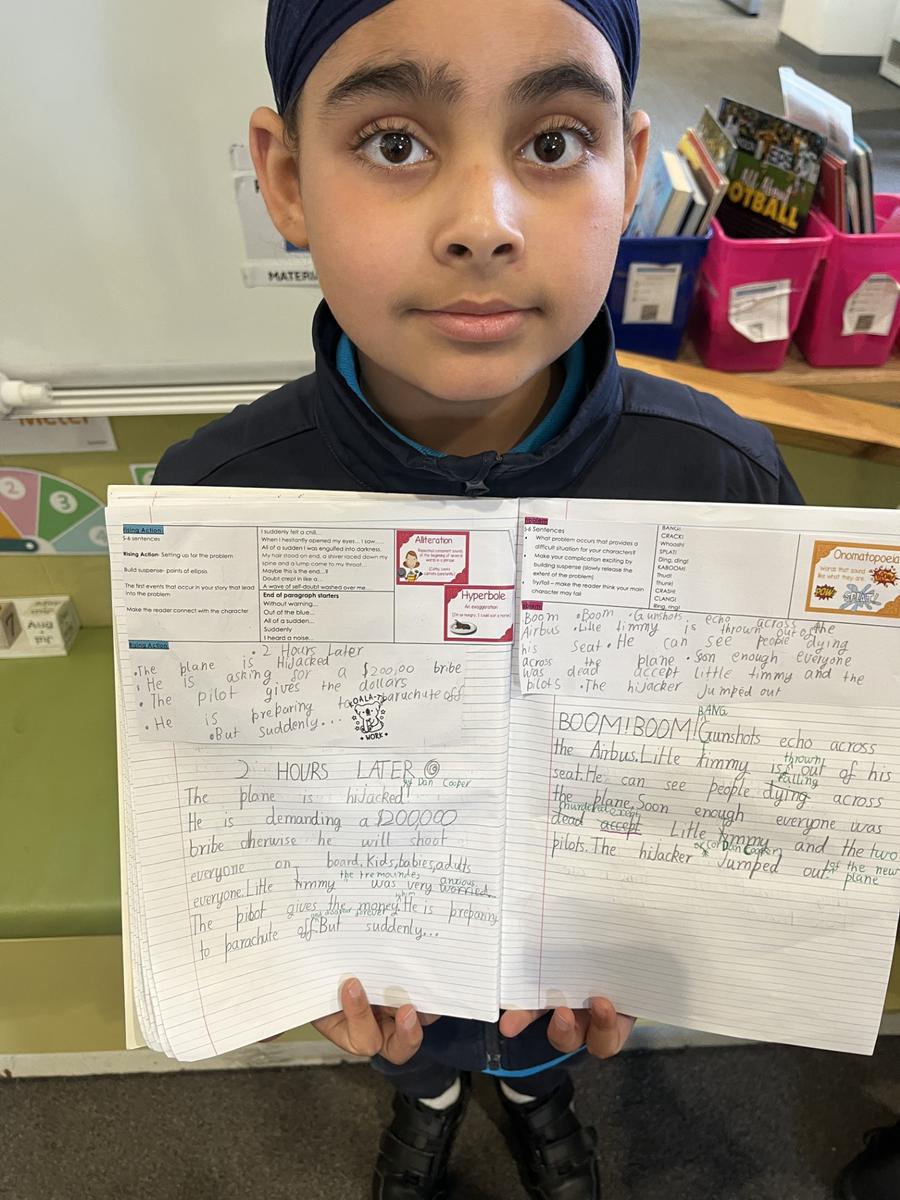 MATERI
Meter
2
3
All About
FOOTBALL
Rising Action:
5-6 sentences
Rising Action- Setting us for the problem
Build suspense- points of elipsis.
The first events that occur in your story that lead
into the problem
Make the reader connect with the character
I suddenly felt a chill...
When I hesitantly opened my eyes... I saw.....
All of a sudden I was engulfed into darkness.
My hair stood on end, a shiver raced down my
spine and a lump came to my throat...
Maybe this is the end...II
Doubt crept in like a...
A wave of self-doubt washed over me.
End of paragraph starters
Without warning...
Out of the blue...
All of a sudden...
Suddenly
I heard a noise...
Alliteration
Hyperbole
An exaggeration
5-6 Sentences
What problem occurs that provides a
difficult situation for your characters?
Make your complication exciting by
building suspense (slowly release the
extent of the problem)
make the reader think your main
character may fail
BANG!
CRACK!
Whoosh!
SPLAT!
Ding, ding!
KABOOM!
Thud!
Thunk!
CRASH!
CLANG!
Ring, ring!
Onomatopoeia
Words that sound
like what they are.
BOOM
POW
SPLAT!
Rising Action:
• 2 Hours Later
•The plane is Hijacked
• He is asking for a $200,00 bribe
• The pilot gives the dollars
• He is preparing to parachute off
•But suddenly...
KOALA-TY
WORK
Boom •Boom •Gunshots echo across the
Airbus •Litle timmy is thrown out of
his seat •He can see people dying
across the plane • Son enough everyone
was dead accept little timmy and the
pilots •The hijacker Jumped out
2 HOURS LATER
by Dan Cooper
The plane is hiJacked!
He is demanding a $200,000
bribe otherwise he will shoot
everyone on board, Kids, babies, adults
the tremoundes anxious
everyone. Litle timmy was very worried.
him
The pibot gives the money. He is preparing
to parachute off. But suddenly...
BANG.
BOOM! BOOM! Gunshots echo across
the Airbus. Litle timmy is out of his
thrown
falling
seat. He can see people dying across
the plane. Soon enough everyone was
murdered except
dead accept Litle timmy and the two
or cor Dan Cooper
pilots. The hiJacker Jumped out of the new
plane